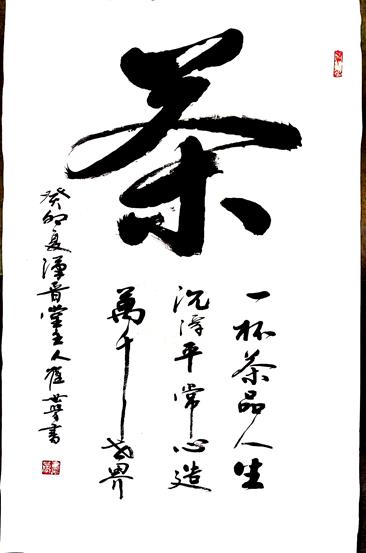 茶
一杯茶品人生
沉浮平常心造
萬千世界
癸卯夏漢晋堂主人崔世書